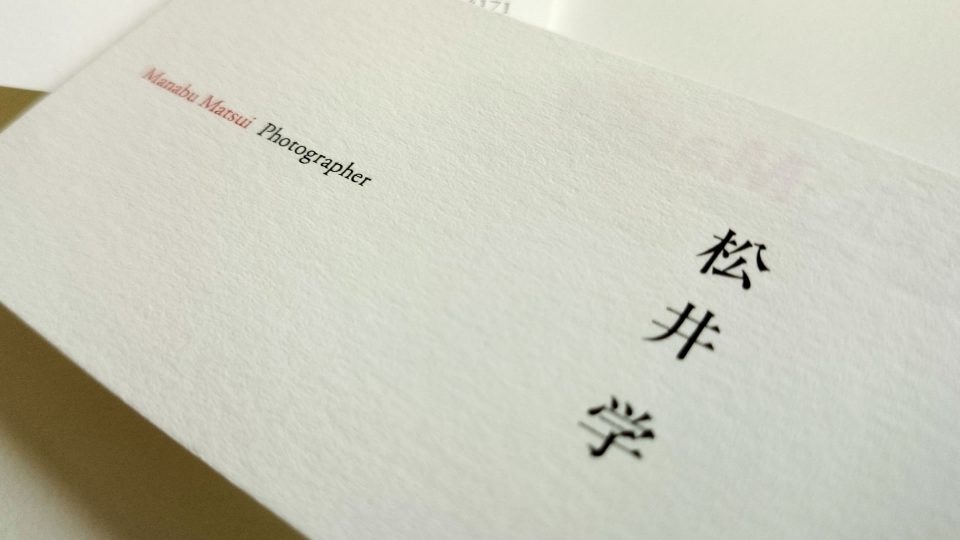 Manabu Matsui Photographer
松井学